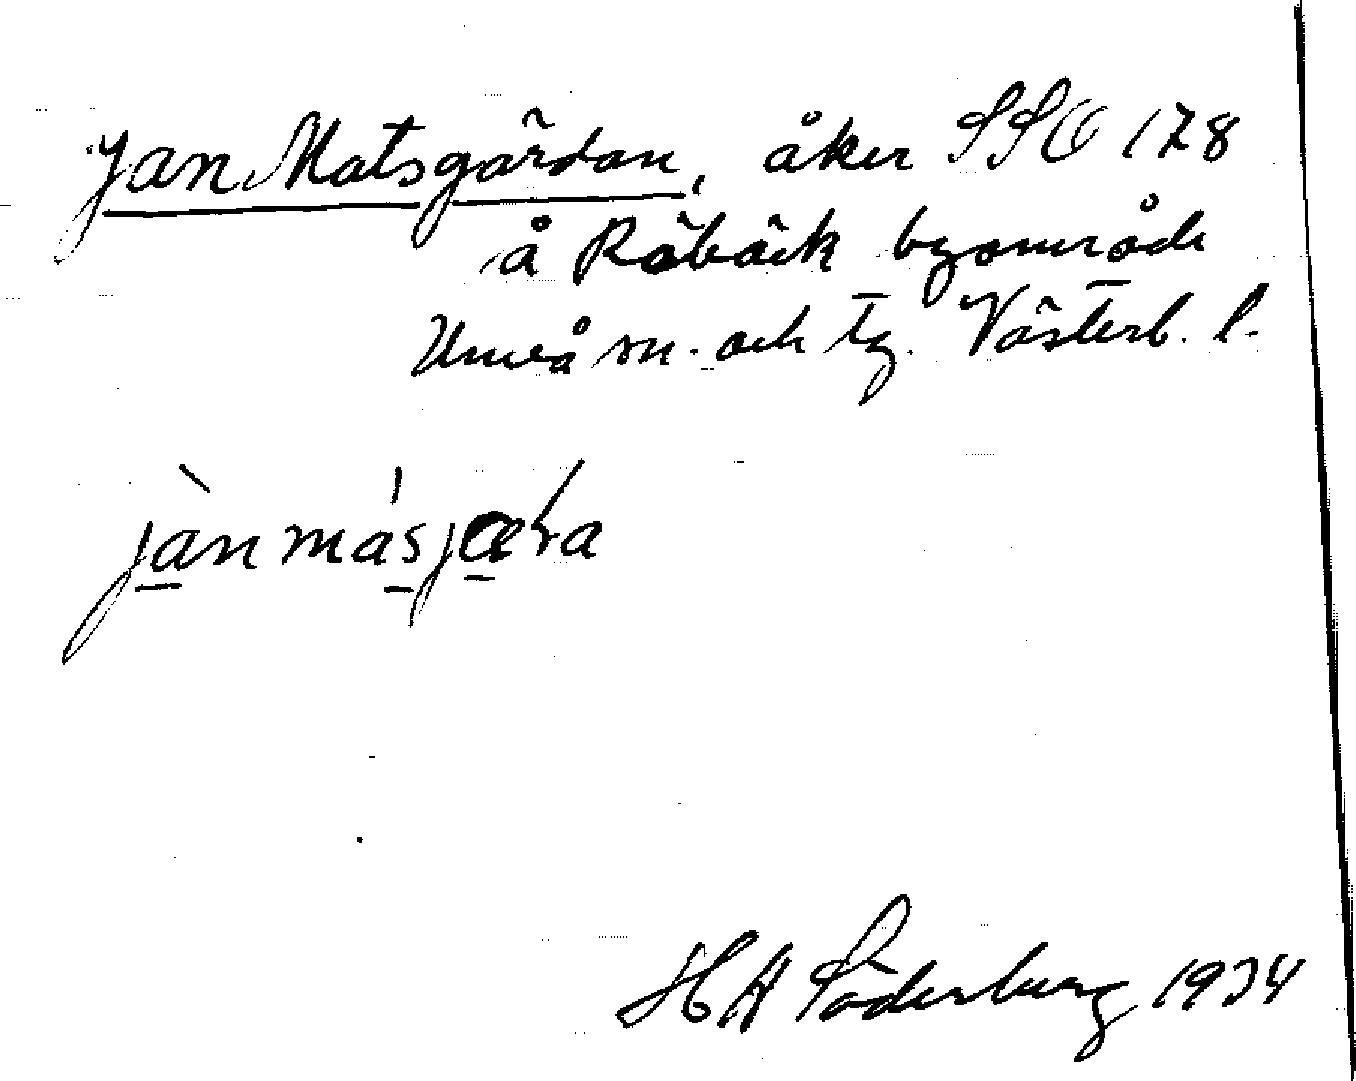 Jan Matsgärdan, åker SSO 178
å Röbäck byområde
Umeå sn. och tg. Västerb. l.
jànmásjæ̀ra
H A Söderberg 1934